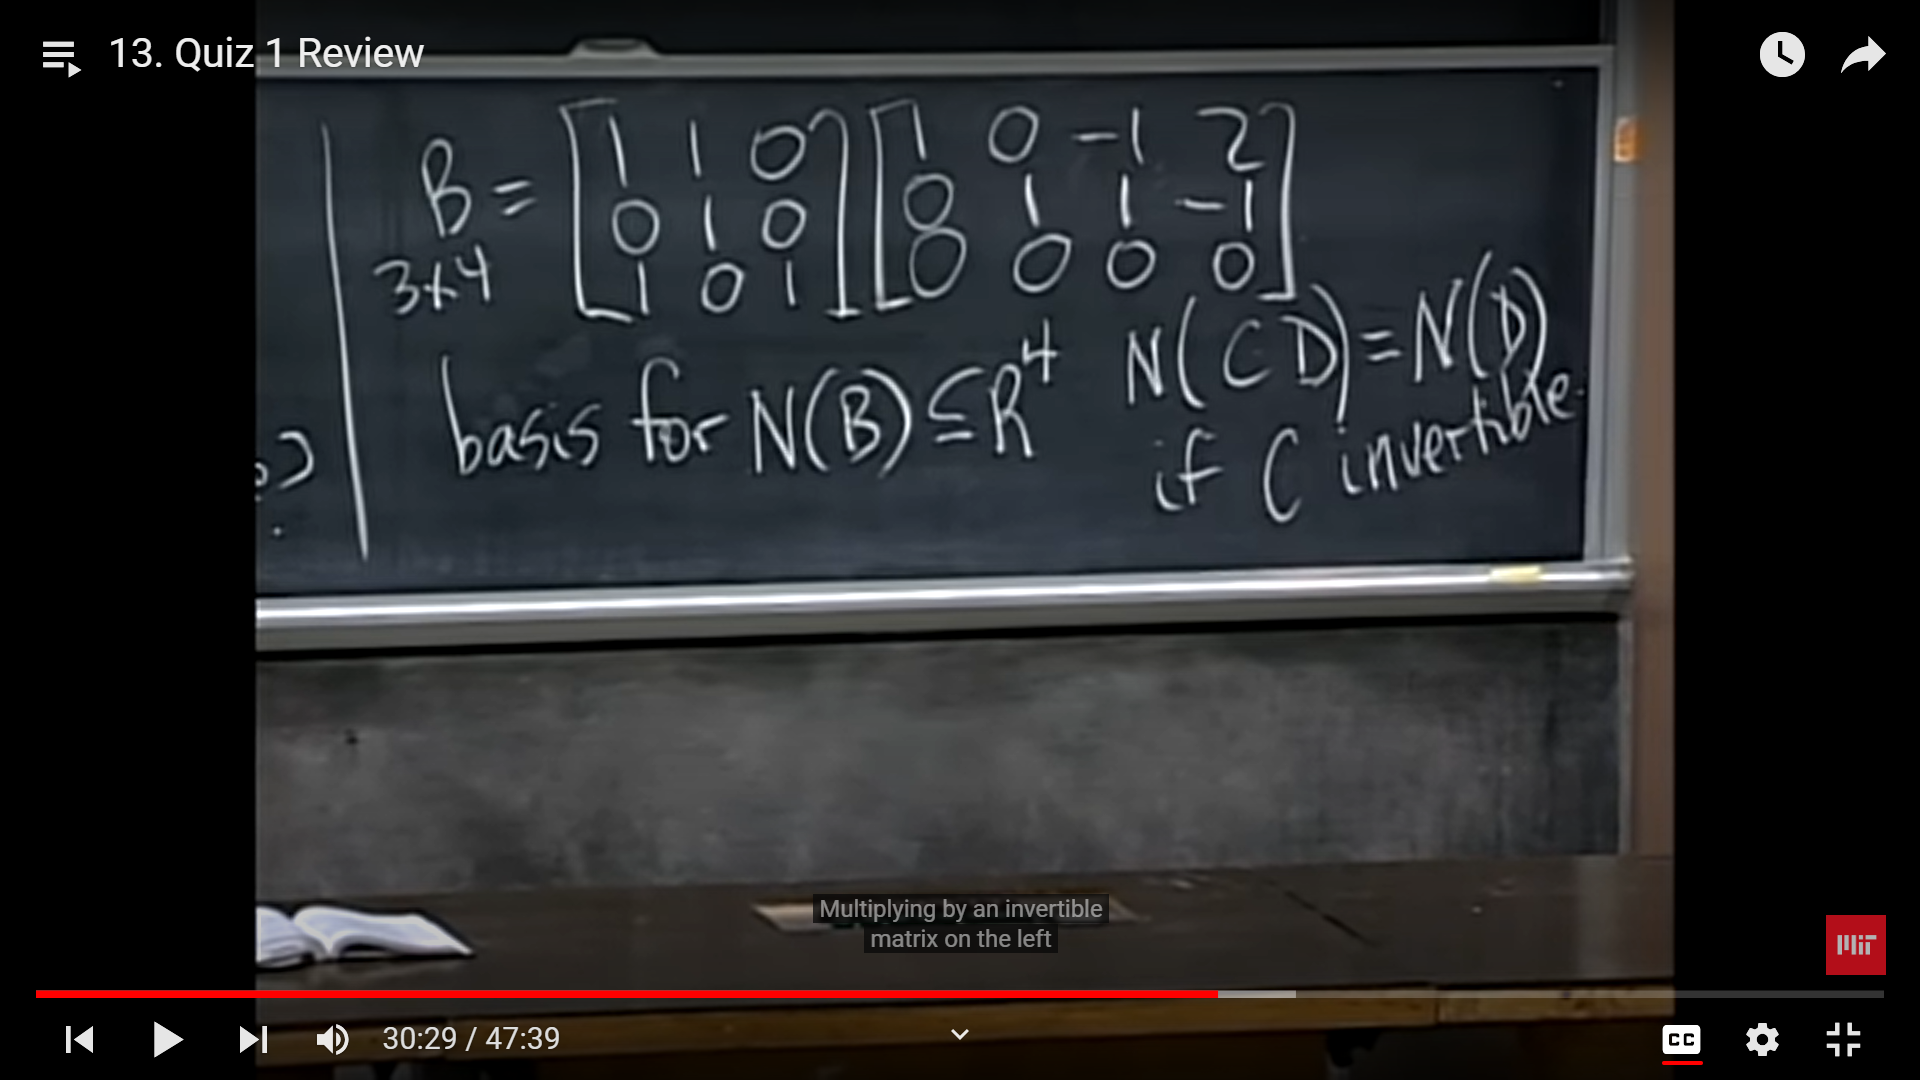 13. Quiz 1 Review
B = [1 1 0] [1 0 -1 2]
[0 1 0] [0 1 1 -1]
3x4 [1 0 1] [0 0 0 0]
basis for N(B) ⊆ R⁴
N(CD) = N(D)
if C invertible.
Multiplying by an invertible
matrix on the left
MIT
30:29 / 47:39
CC